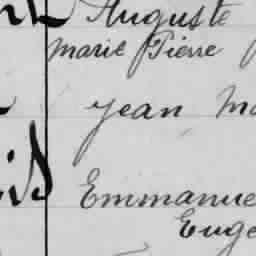 Auguste
Marie Pierre
Jean
Emmanue
Euge